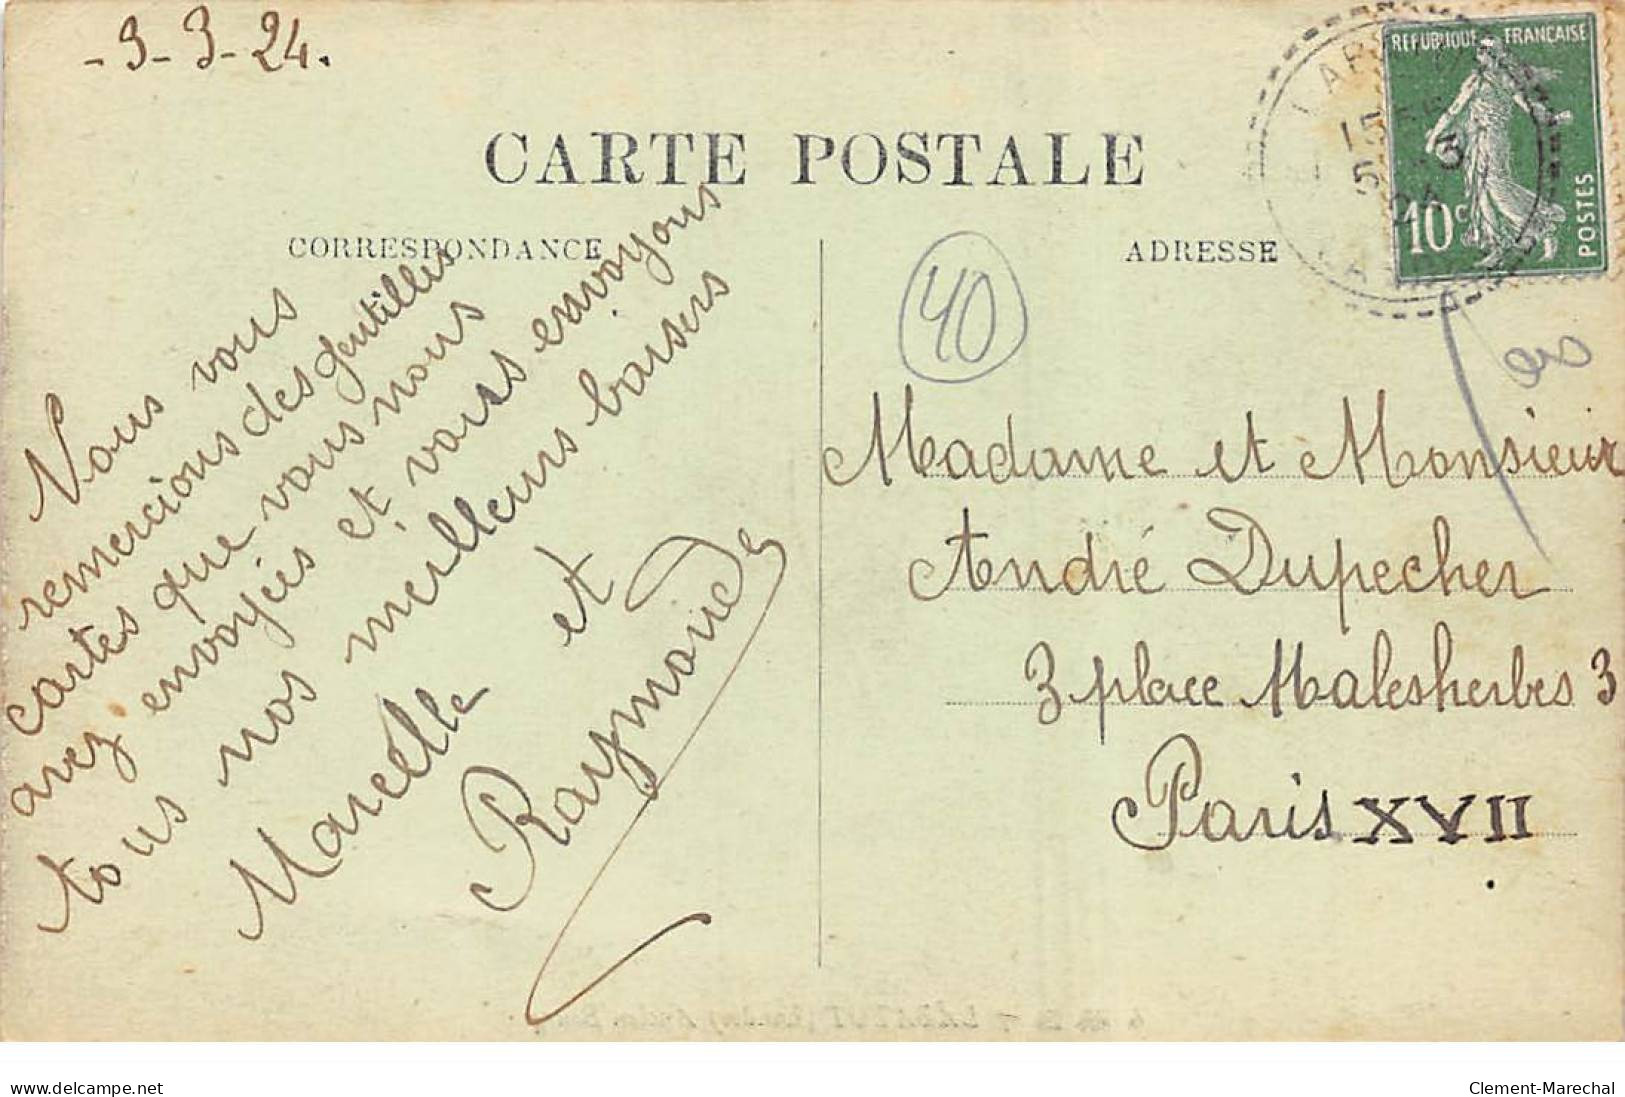 -3-3-24.
REPUBLIQUE FRANÇAISE
10c
POSTES
CARTE POSTALE
CORRESPONDANCE
ADRESSE
40
Nous vous
remercions des gentilles
cartes que vous nous
avez envoyées et vous envoyons
tous nos meilleurs baisers
Marcelle et
Raymonde
Madame et Monsieur
André Dupecher
3 place Malesherbes 3
Paris XVII
delcampe.net
Clement-Marechal